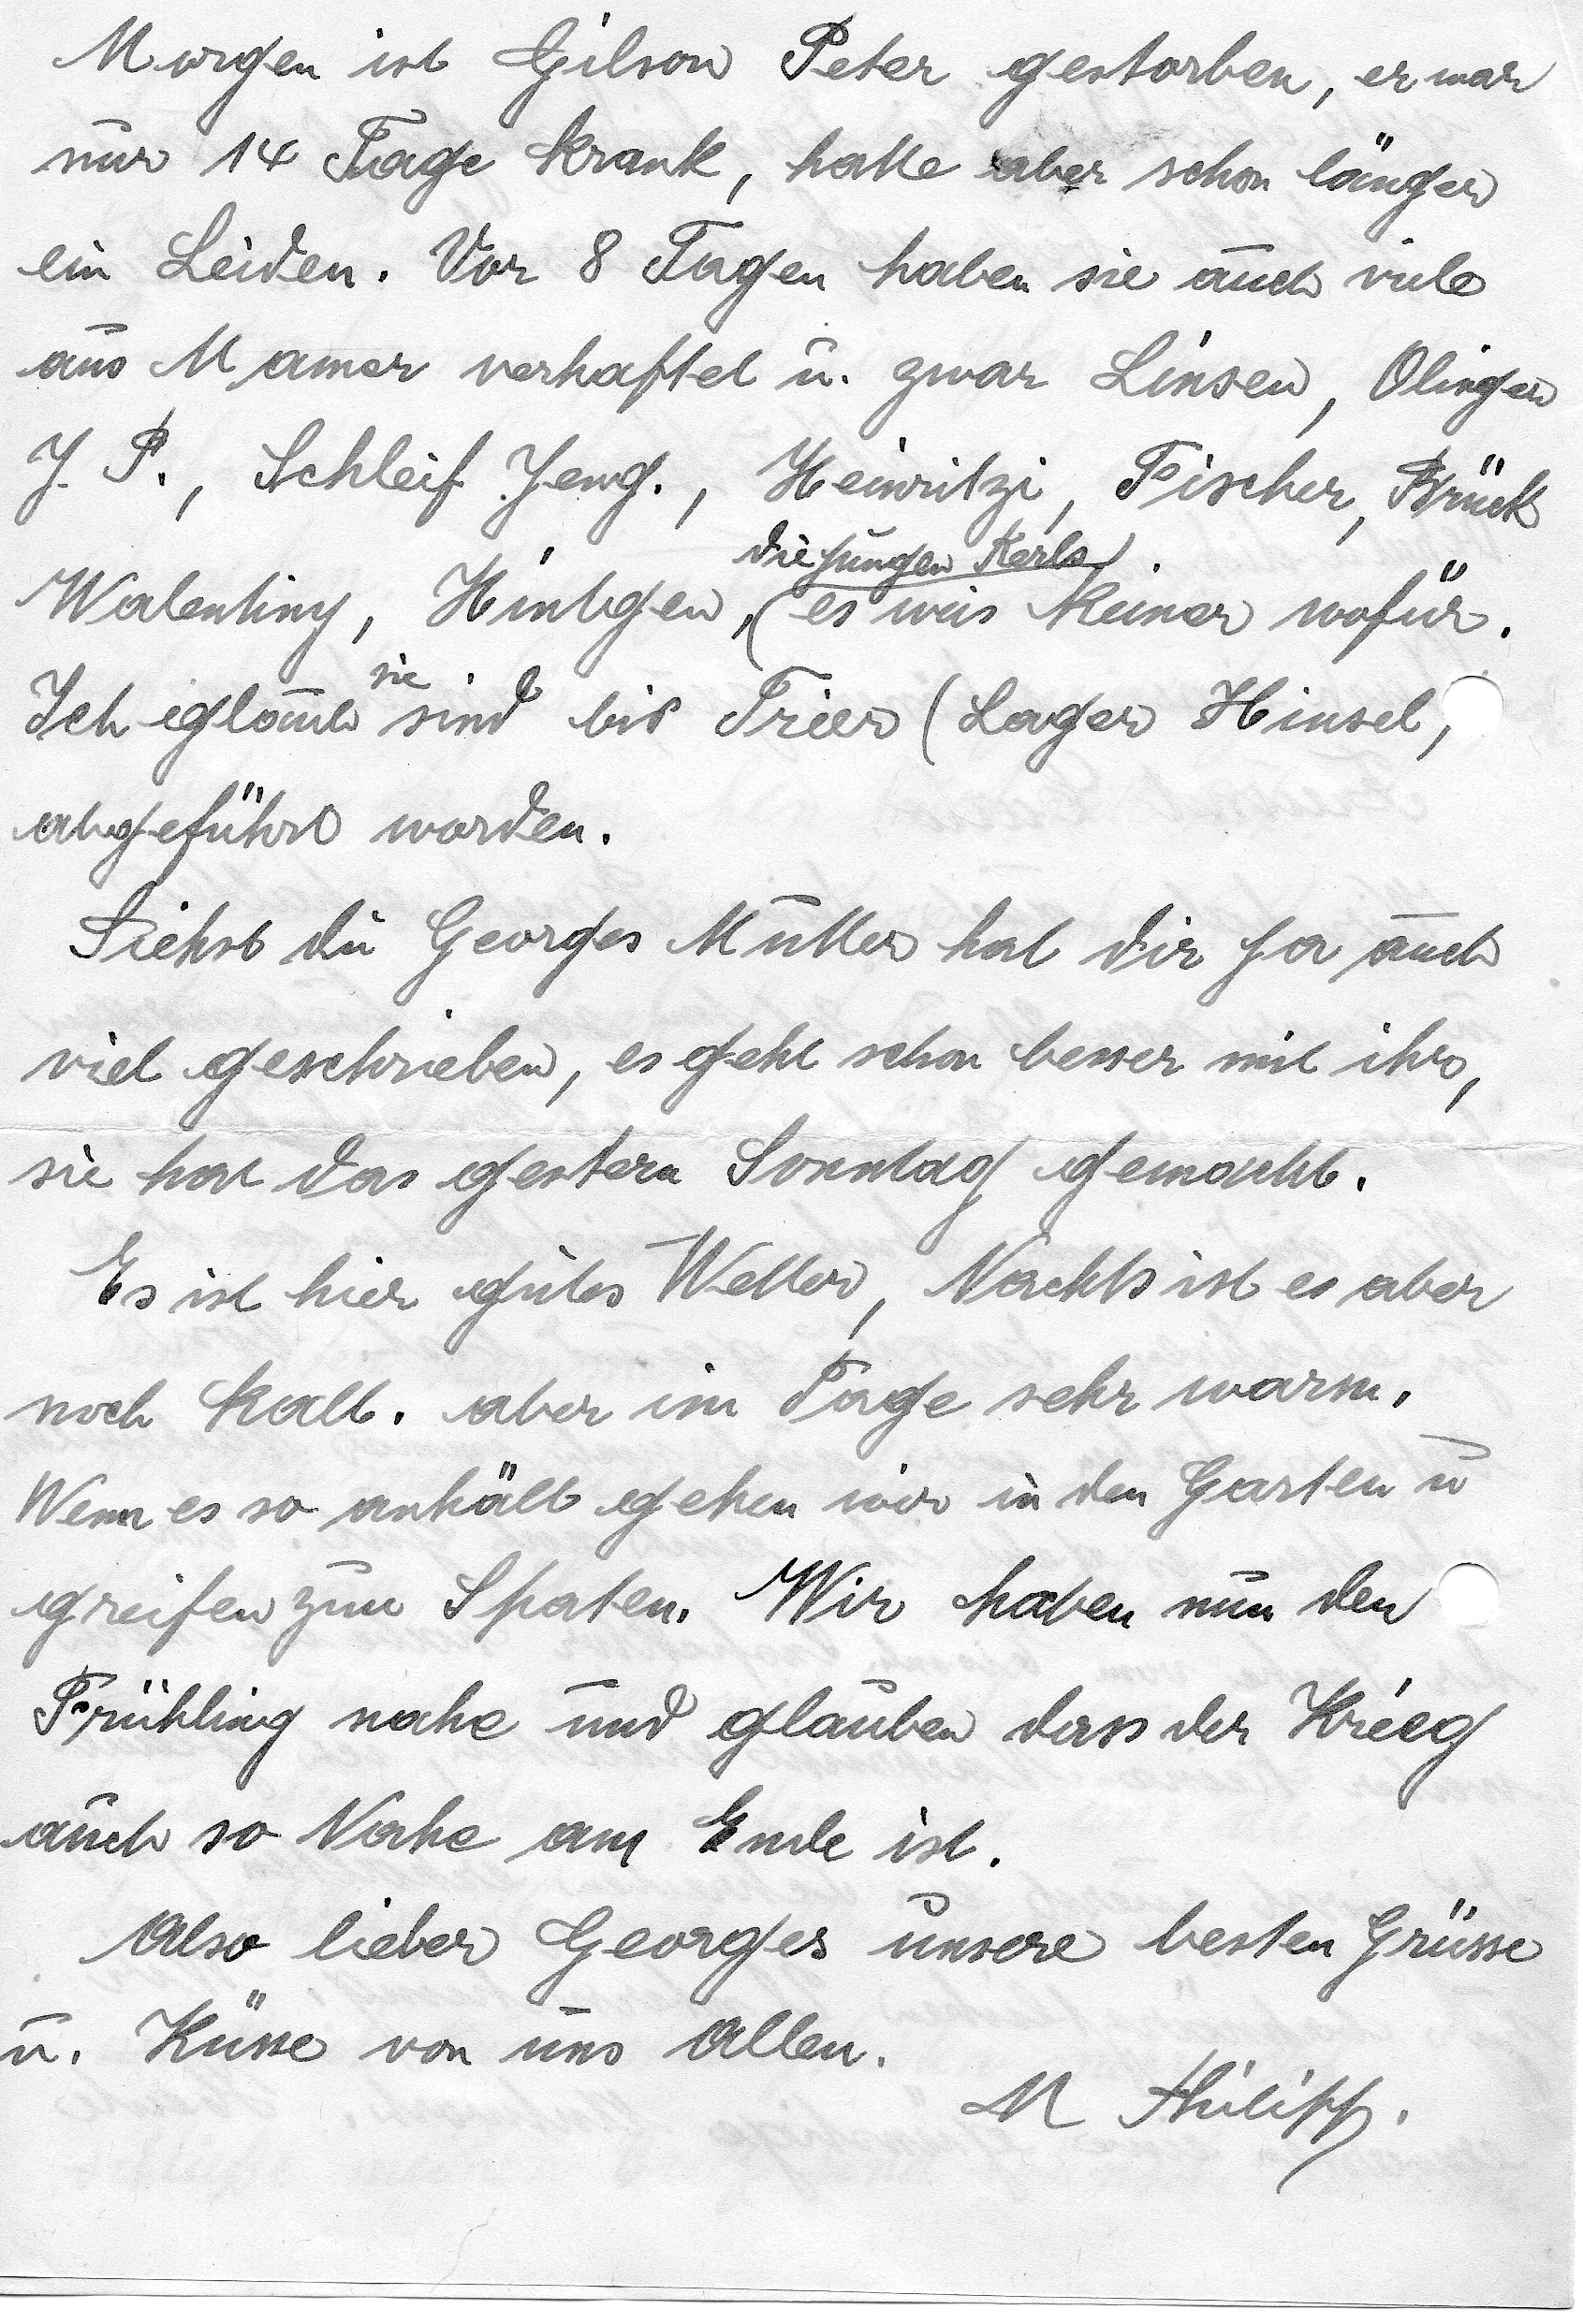 Morgen ist Gilson Peter gestorben, er war
nur 14 Tage krank, hatte aber schon länger
ein Leiden. Vor 8 Tagen haben sie auch viele
aus Mamer verhaftet u. zwar Linsen, Olinger
J. P., Schleif Jeng., Heinritzi, Fischer, Brück
die jungen Kerls
Walentiny, Hintgen, (es weis keiner wofür.
Ich glaube sie sind bis Trier (Lager Hinsel,
abgeführt worden.
Siehst du Georges Mutter hat dir ja auch
viel geschrieben, es geht schon besser mit ihr,
sie hat das gestern Sonntag gemacht.
Es ist hier gutes Wetter, Nachts ist es aber
noch kalt. aber im Tage sehr warm.
Wenn es so anhält gehen wir in den Garten u
greifen zum Spaten. Wir haben nun den
Frühling nahe und glauben dass der Krieg
auch so Nahe am Ende ist.
Also lieber Georges unsere besten Grüsse
u. Küsse von uns Allen.
M Philipp.